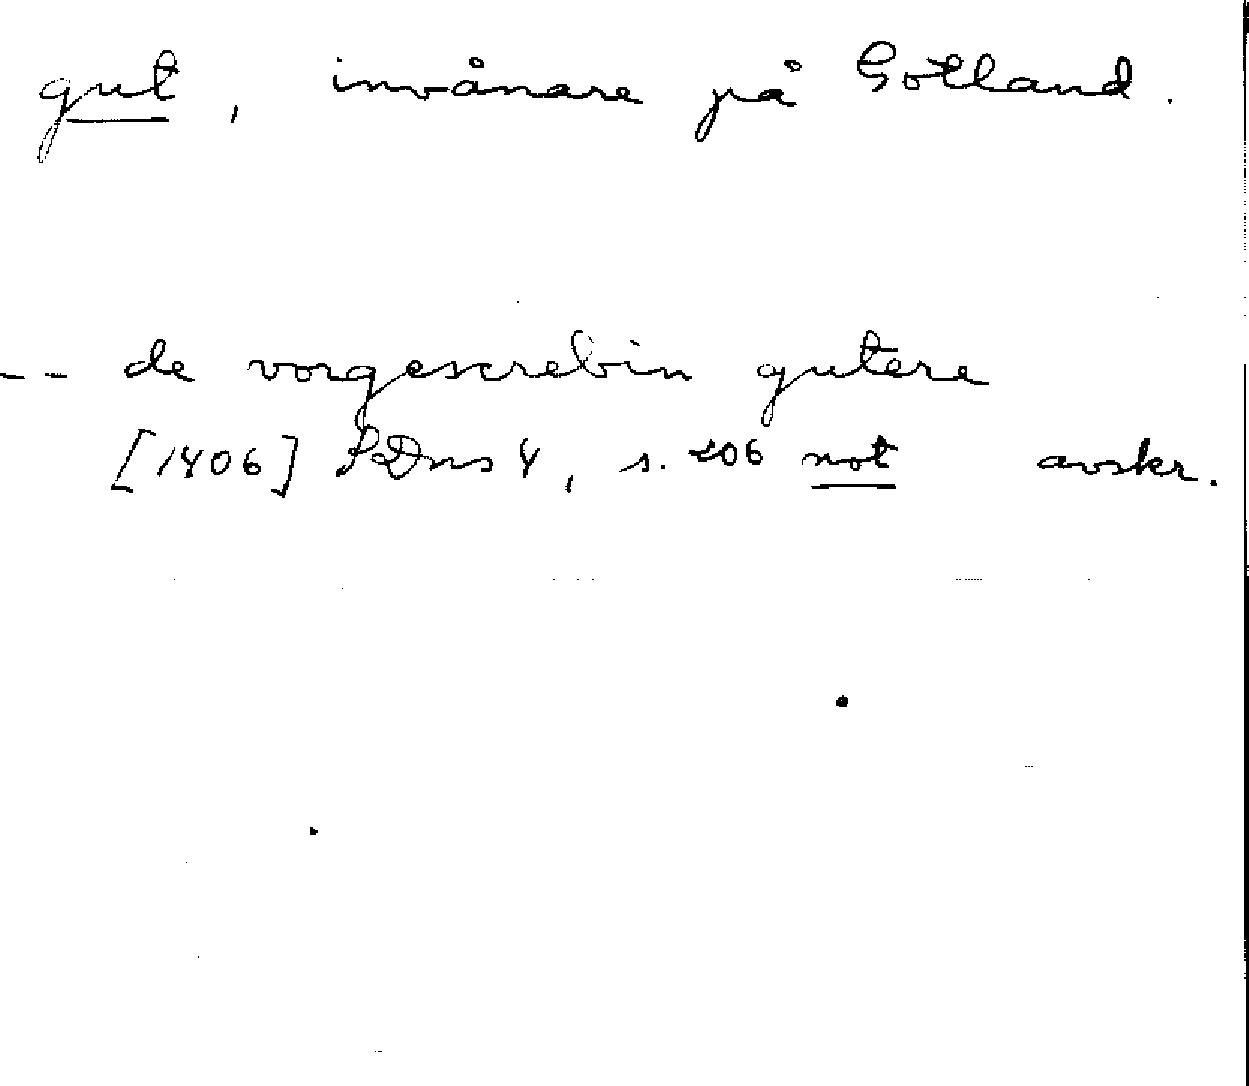 gut, invånare på Gotland.
-- de vorgescrebin gutere
[1406] SDns 4, s. 206 not avskr.